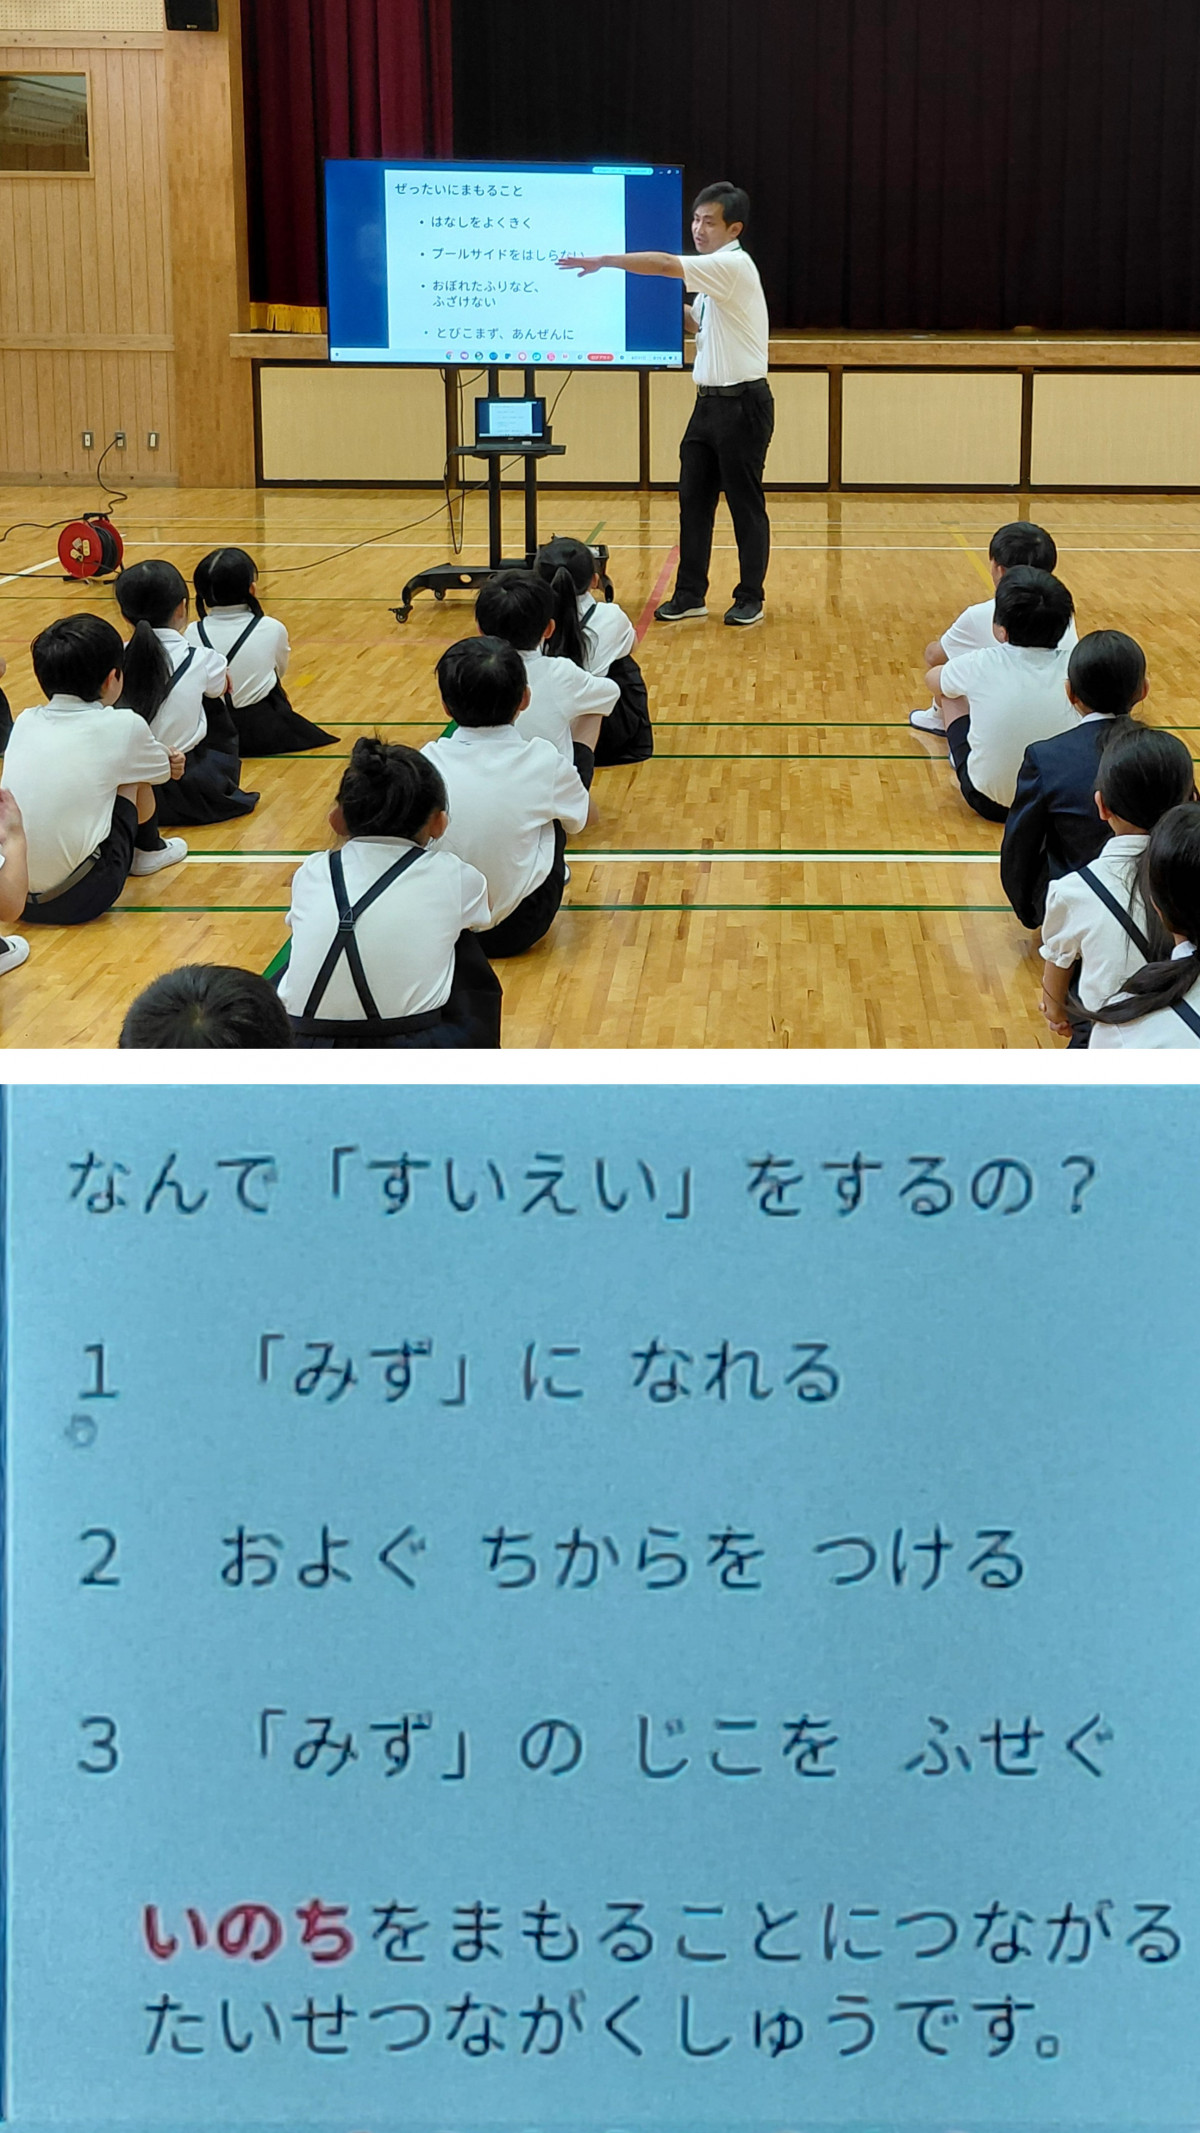 ぜったいにまもること
・はなしをよくきく
・プールサイドをはしらない
・おぼれたふりなど、
ふざけない
・とびこまず、あんぜんに
なんで「すいえい」をするの？
1 「みず」に なれる
2 およぐ ちからを つける
3 「みず」の じこを ふせぐ
いのちをまもることにつながる
たいせつながくしゅうです。